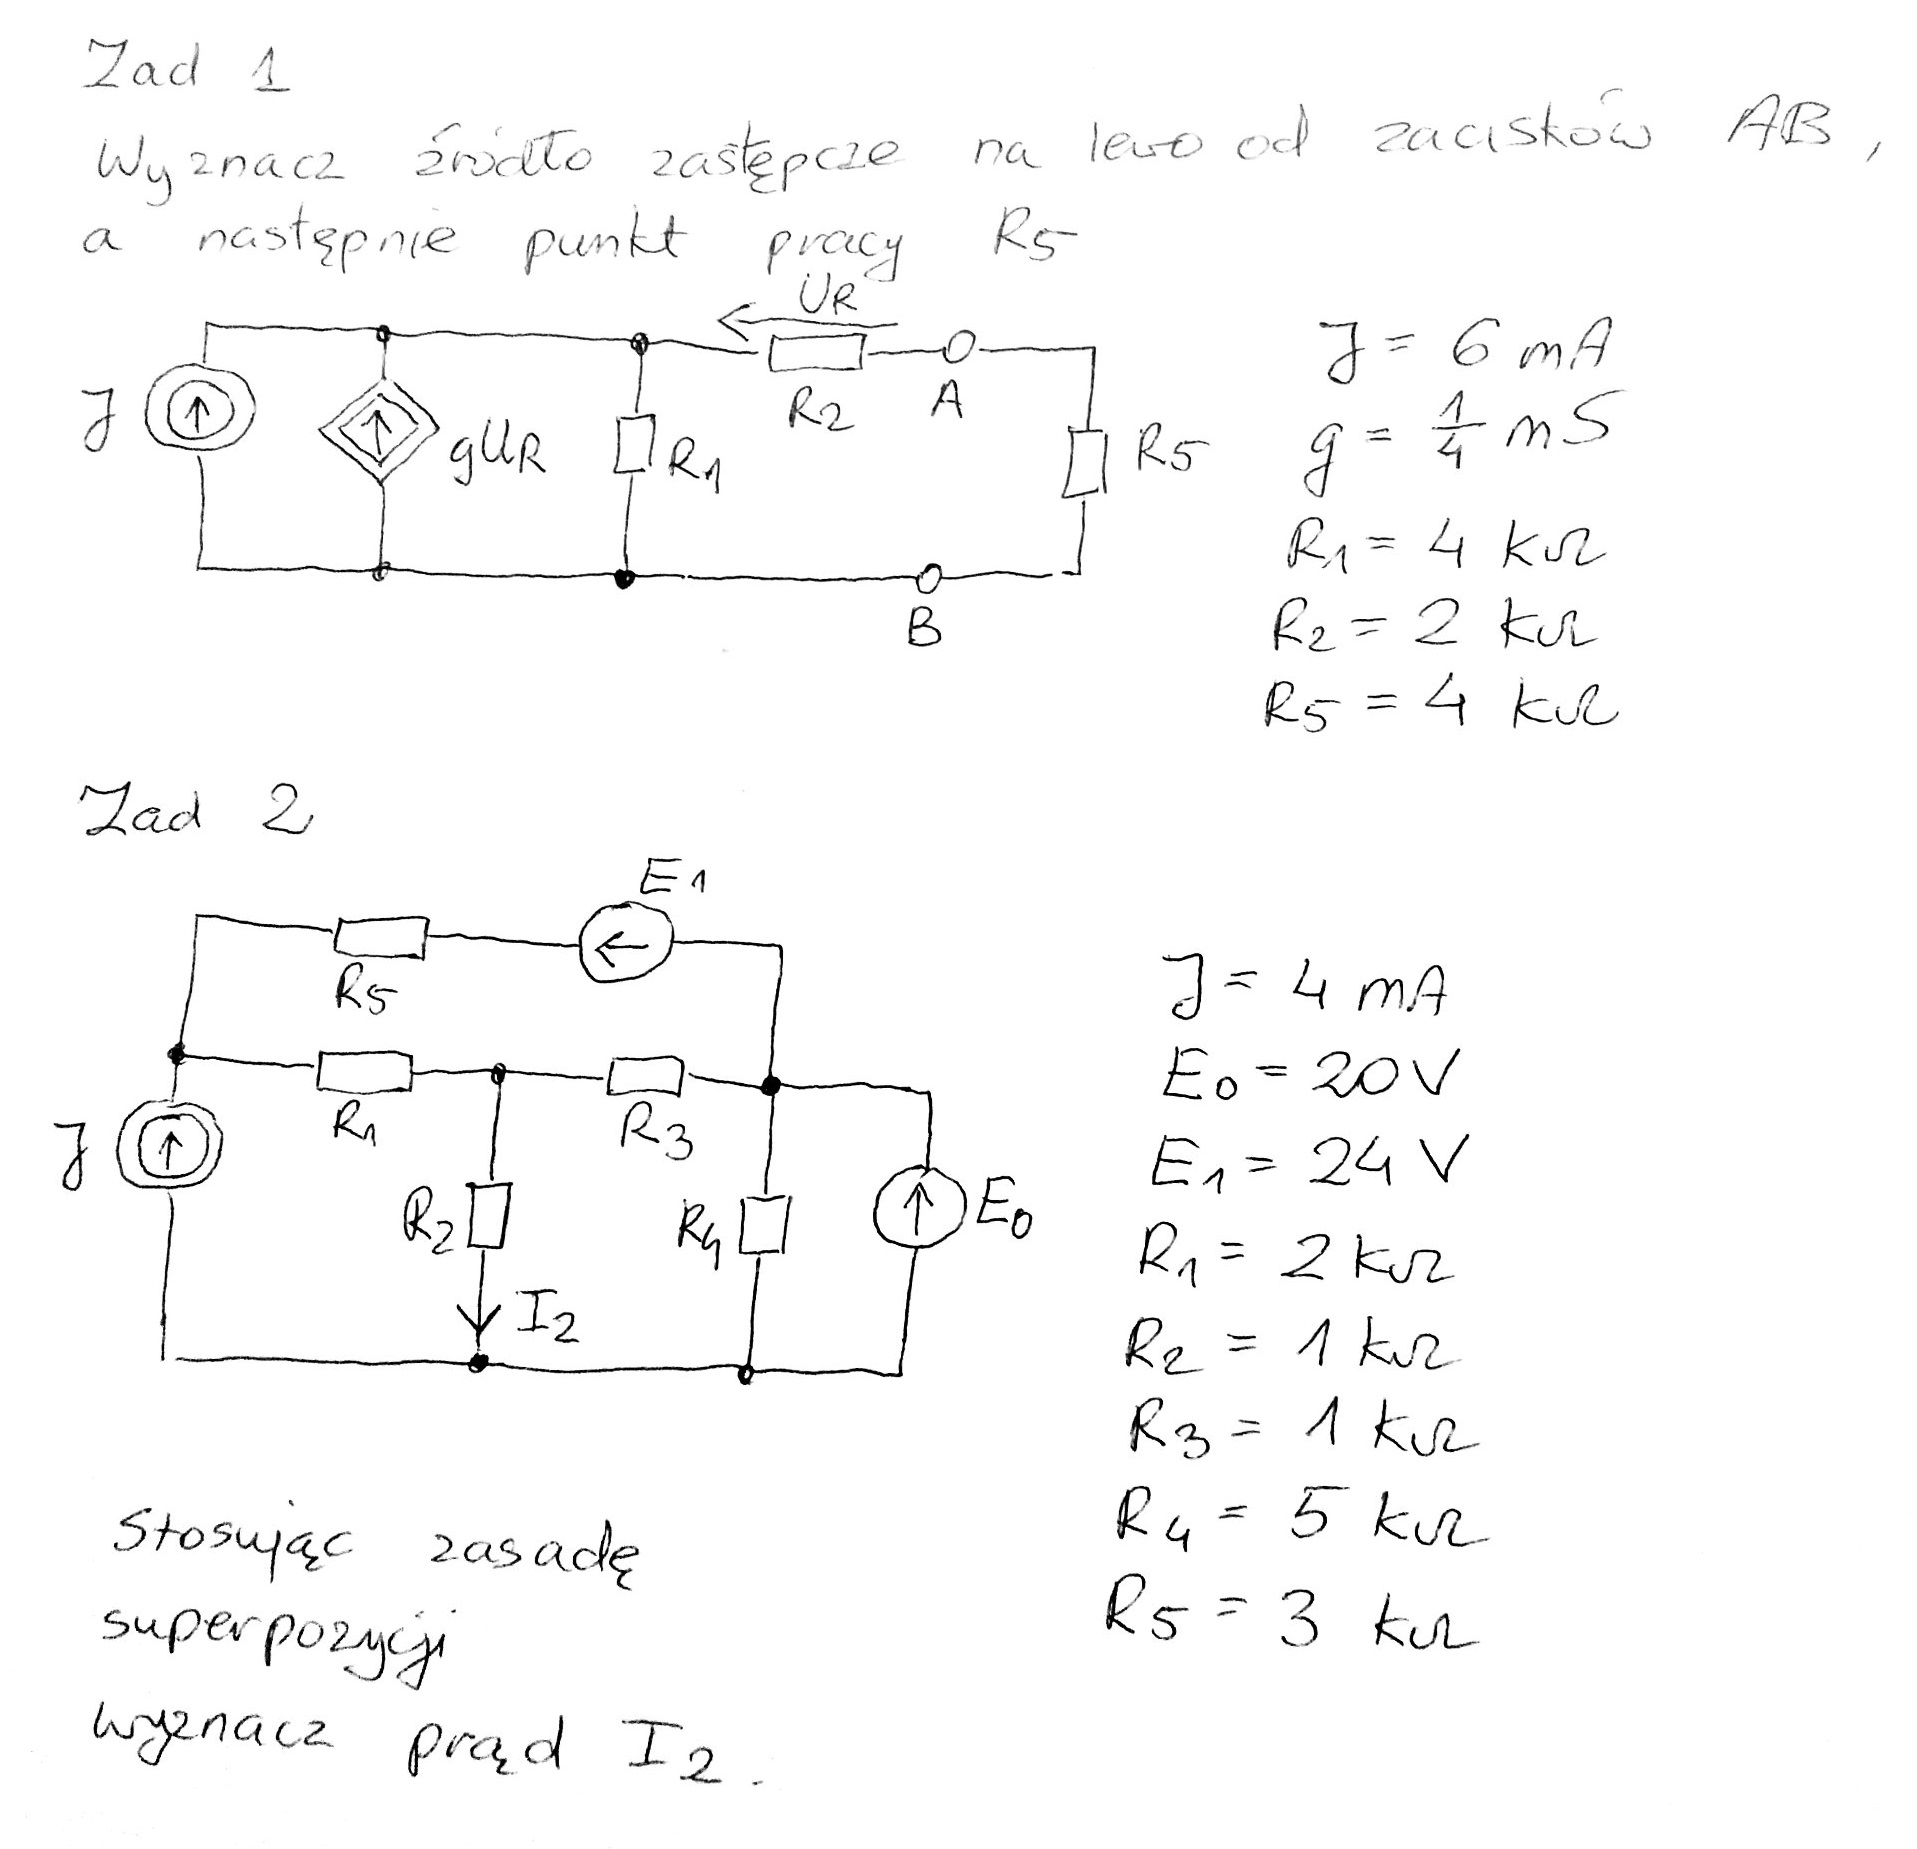 Zad 1
Wyznacz źródło zastępcze na lewo od zacisków AB,
a następnie punkt pracy R5
UR
J
gUR
R1
R2
A
R5
B
J = 6 mA
g = 1/4 mS
R1 = 4 kΩ
R2 = 2 kΩ
R5 = 4 kΩ
Zad 2
E1
R5
R1
R3
J
R2
R4
E0
I2
J = 4 mA
E0 = 20 V
E1 = 24 V
R1 = 2 kΩ
R2 = 1 kΩ
R3 = 1 kΩ
R4 = 5 kΩ
R5 = 3 kΩ
Stosując zasadę
superpozycji
wyznacz prąd I2.